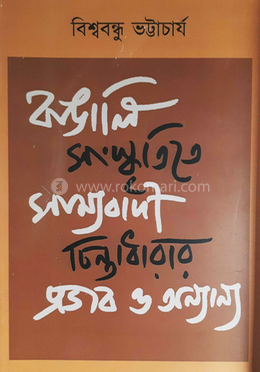 বিশ্ববন্ধু ভট্টাচার্য
বাঙালি
সংস্কৃতিতে
সাম্যবাদী
চিন্তাধারার
প্রভাব ও অন্যান্য
www.rokomari.com